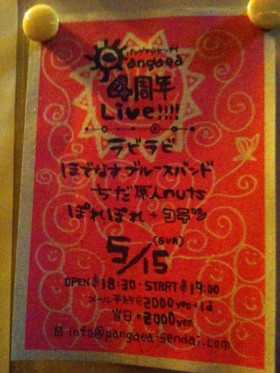 pangaea
4周年
Live!!!!
ラビラビ
ほでなすブルースバンド
ちだ原人nuts
ぽれぽれ +
5/15 (SUN)
OPEN 18:30 - START 19:00
メール予約 2000yen+1d
当日 2000yen
info@pangaea-sendai.com